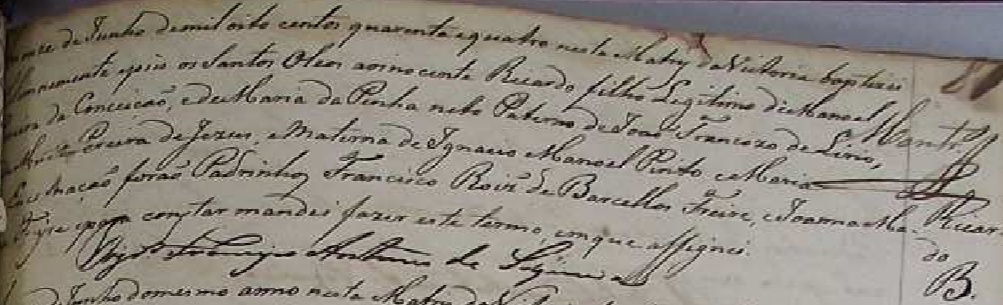 de Junho de mil oito centos quarenta e quatro nesta Matriz da Victoria baptizei
Solemnemente e puz os Santos Oleos ao innocente Ricardo filho Legitimo de Manoel
da Conceição, e de Maria da Penha neto Paterno de João Francisco de Lirio,
Pereira de Jezus, e Materna de Ignacio Manoel Pinto e Maria
da forão Padrinhos Francisco Roiz de Barcellos Freire, e Joanna Ma.
Freire e para constar mandei fazer este termo, em que assignei.
Antunes de Siqueira
de Junho do mesmo anno nesta Matriz da
Ricar-
do
B.